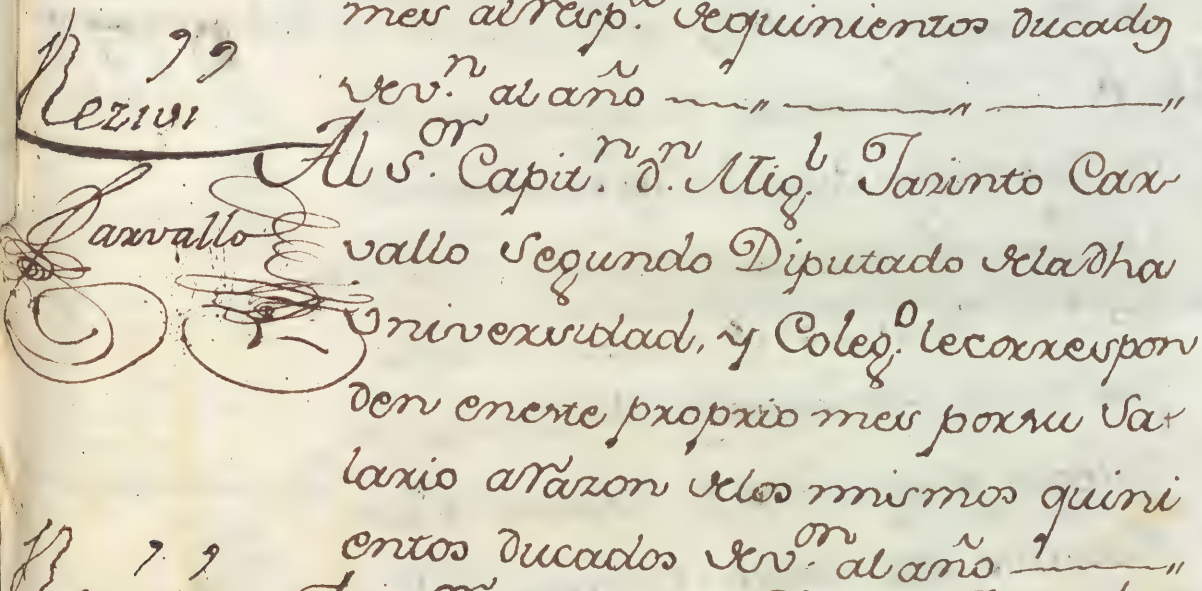 mes al resp.to de quinientos ducados
de v.n al año
Rezivi
Al S.or Capit.n d.n Mig.l Jazinto Car
Carvallo
vallo Segundo Diputado de la dha
Universidad, y Coleg.o le correspon
den en este proprio mes por su Sa-
lario a razon de los mismos quini
entos ducados de v.on al año